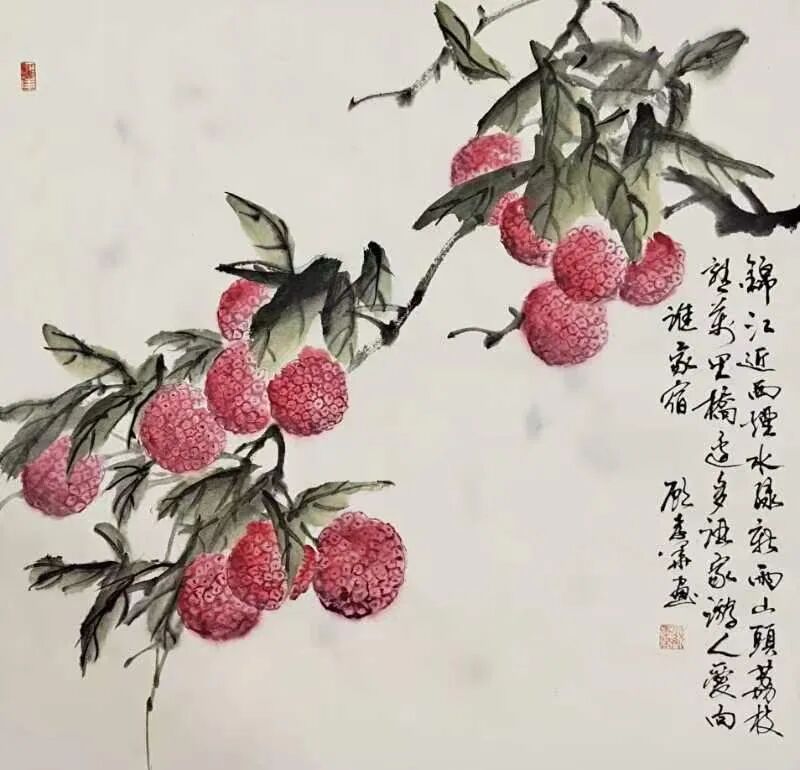 錦江近西煙水緑新雨山頭荔枝
熟萬里橋邊多酒家游人愛向
誰家宿
畫